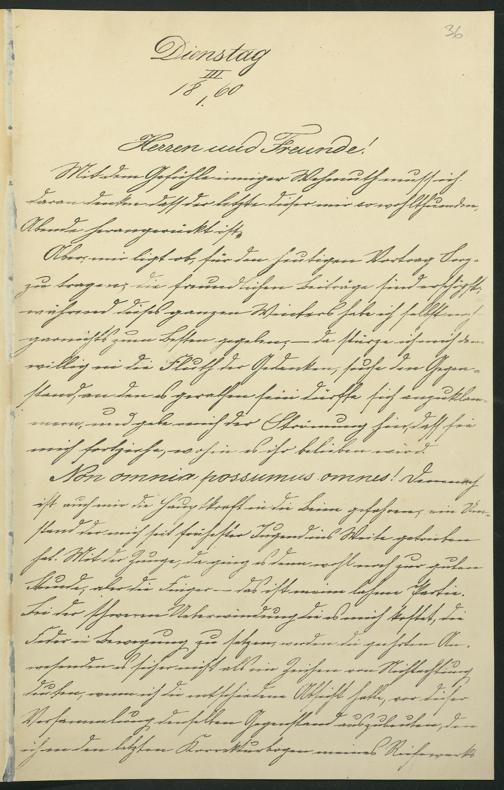 36
Dienstag
III
18 1. 60
Herren und Freunde!
Mit dem Gefühle inniger Wehmuth muß ich
daran denken daß der letzte dieser mir so wohlthuenden
Abende herangerückt ist.
Aber, mir liegt ob, für den heutigen Vortrag Sorge
zu tragen; die freundlichen Beiträge sind erschöpft,
während dieses ganzen Winters habe ich selbst noch
garnichts zum Besten gegeben, — da stürze ich mich denn
willig in die Fluth der Gedanken, suche den Gegen-
stand, an den es gerathen sein dürfte sich anzuklam-
mern, und gebe mich der Strömung hin, daß sie
mich fortziehe, wohin es ihr belieben wird.
Non omnia possumus omnes! Demnach
ist auch mir die Hauptkraft in die Beine gefahren, ein Um-
stand der mich seit frühester Jugend ins Weite getrieben
hat. Mit der Zunge, da ging es denn wohl noch zur guten
Stunde, aber die Finger — das ist meine lahme Partie.
Bei der schweren Ueberwindung die es mich kostet, die
Feder in Bewegung zu setzen, werden die geehrten An-
wesenden es sicher nicht als ein Zeichen von Nichtachtung
deuten, wenn ich die entschiedene Absicht habe, vor dieser
Versammlung denselben Gegenstand auszubeuten, den
ich an den letzten Korrekturbogen meines Reisewerks